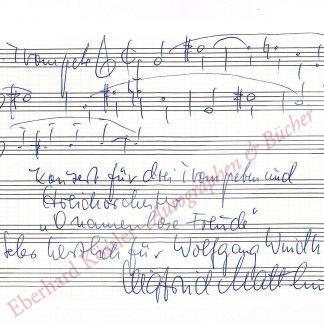 Trompete
Konzert für drei Trompeten und
Streichorchester
"O namenlose Freude"
Sehr herzlich für Wolfgang Windth
Siegfried Matth
Eberhard Köstler Autographen & Bücher